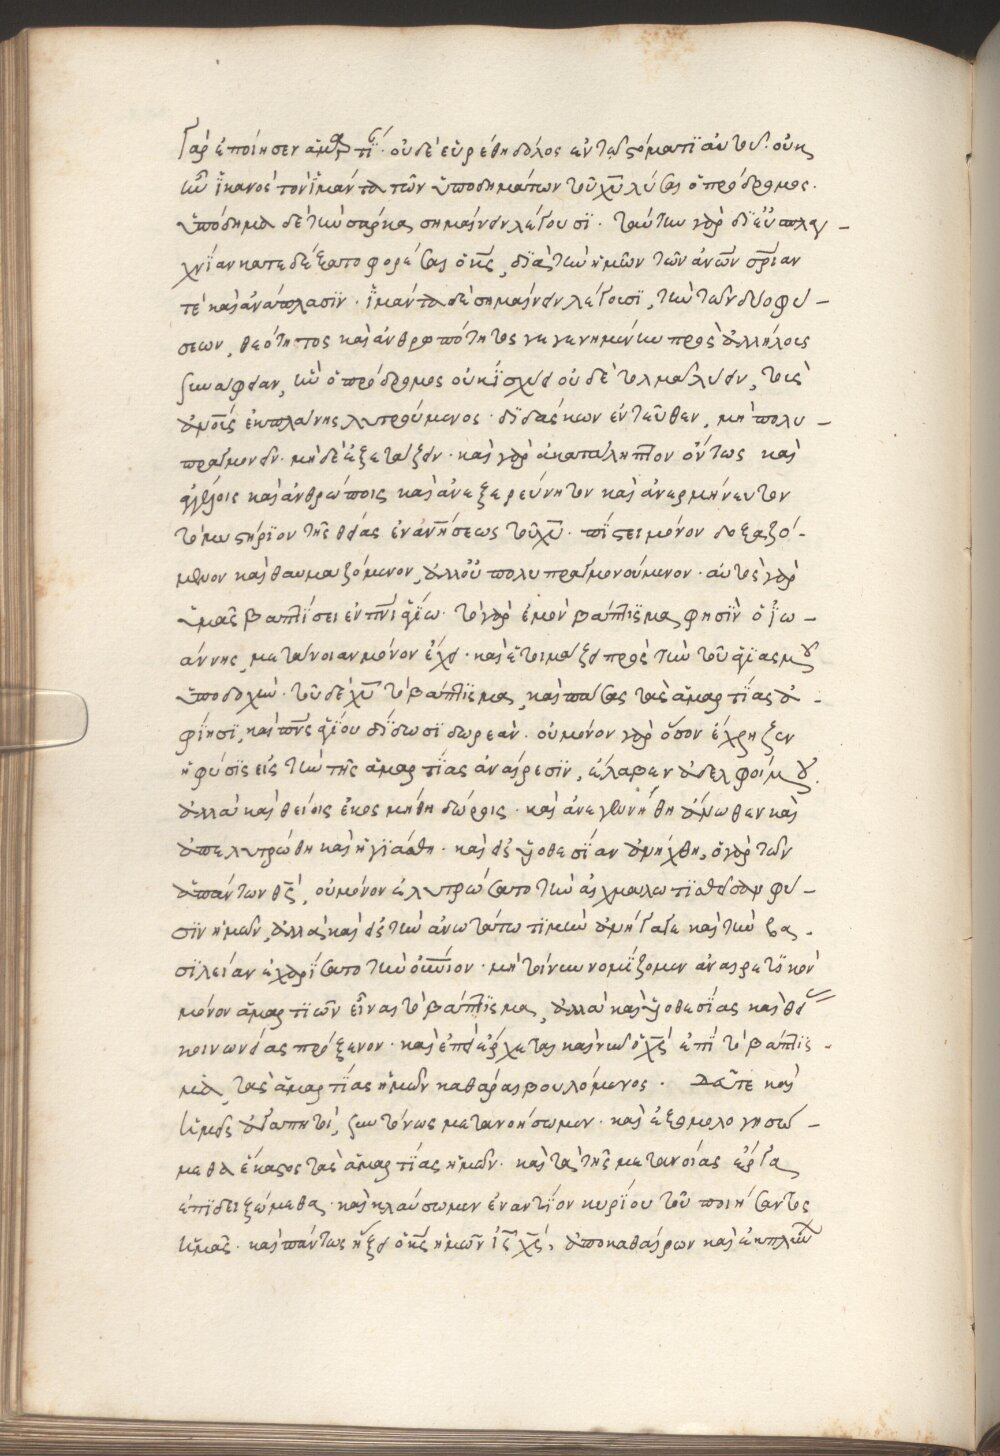 γὰρ ἐποίησεν ἁμαρτί· οὐδὲ εὑρέθη δόλος ἐν τῷ στόματι αὐτοῦ· οὐκ
ἦν ἱκανὸς τὸν ἱμάντα τῶν ὑποδημάτων τοῦ χυ λῦσαι ὁ πρόδρομος·
ὑπόδημα δὲ τὴν σάρκα σημαίνειν λέγουσι· ταύτην γὰρ δι' εὐσπλαγ-
χνίαν κατεδέξατο φορέσαι ὁ κς, διὰ τὴν ἡμῶν τῶν ἀνων σριαν
τὲ καὶ ἀνάπλασιν· ἱμάντα δὲ σημαίνειν λέγουσι, τὴν τῶν δύο φύ-
σεων, θεότητος καὶ ἀνθρωπότητος γεγενημένην πρὸς ἀλλήλους
συνάφειαν, ἣν ὁ πρόδρομος οὐκ ἴσχυε οὐδὲ τολμᾶ λύειν, τοῖς
ὤμοις ἐκπλαγεὶς
πραγμονεῖν· μὴ δὲ ἐξετάζειν· καὶ γὰρ ἀκατάληπτον ὄντως καὶ
ἀγγέλοις καὶ ἀνθρώποις καὶ ἀνεξερεύνητον καὶ ἀνερμήνευτον
τὸ μυστήριον τῆς θείας ἐνανήσεως τοῦ χυ· πίστει μόνον δοξαζό-
μενον καὶ θαυμαζόμενον, ἀλλ' οὐ πολυπραγμονούμενον· αὐτὸς γὰρ
ὑμᾶς βαπτίσει ἐν πνι ἁγίω· τὸ γὰρ ἐμὸν βάπτισμα, φησὶν ὁ ἰω-
άννης, μετάνοιαν μόνον ἔχει· καὶ ἑτοιμάζει πρὸς τὴν τοῦ ἁγιασμοῦ
ὑποδοχήν· τοῦ δὲ χυ τὸ βάπτισμα, καὶ πάσας τὰς ἁμαρτίας ἀ-
φίησι, καὶ πνς ἁγίου δίδωσι δωρεάν· οὐ μόνον γὰρ ὅσον ἔχρηζεν
ἡ φύσις εἰς τὴν τῆς ἁμαρτίας ἀναίρεσιν, ἔλαβεν ἀδελφοί μου·
ἀλλὰ καὶ θείοις δώροις· καὶ ἀνεγεννήθη ἄνωθεν καὶ
ἀπελυτρώθη καὶ ἡγιάσθη· καὶ εἰς υἱοθεσίαν ἀνήχθη, ὁ γὰρ τῶν
ἁπάντων θς, οὐ μόνον ἐλυτρώσατο τὴν αἰχμαλωτισθεῖσαν φύ-
σιν ἡμῶν, ἀλλὰ καὶ εἰς τὴν ἀνωτάτω τιμὴν ἀνήγαγε καὶ τὴν βα-
σιλείαν ἐχαρίσατο τὴν αἰώνιον· μὴ τοίνυν νομίζομεν ἀναιρετικὸν
μόνον ἁμαρτιῶν εἶναι τὸ βάπτισμα, ἀλλὰ καὶ υἱοθεσίας καὶ θεί
κοινωνίας πρόξενον· καὶ ἐπεὶ ἔρχεται καὶ νῦν ὁ χς ἐπὶ τὸ βάπτισ-
μα, τὰς ἁμαρτίας ἡμῶν καθάραι βουλόμενος· Δεῦτε καὶ
ἡμεῖς ἀγαπητοί, συντόνως μετανοήσωμεν· καὶ ἐξομολογησώ-
μεθα ἕκαστος τὰς ἁμαρτίας ἡμῶν· καὶ τὰ τῆς μετανοίας ἔργα
ἐπιδειξώμεθα· καὶ κλαύσωμεν ἐναντίον κυρίου τοῦ ποιήσαντος
ἡμᾶς· καὶ πάντως ἥξει ὁ κς ἡμῶν ις χς, ἀποκαθαίρων καὶ ἐκπλύν